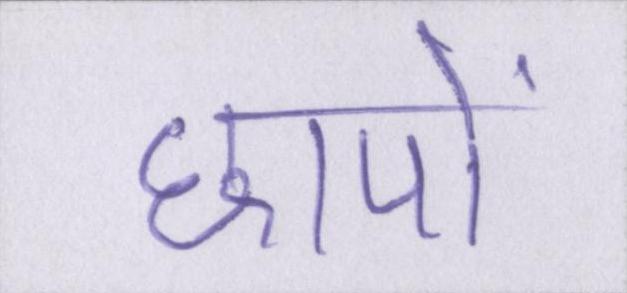 छापों